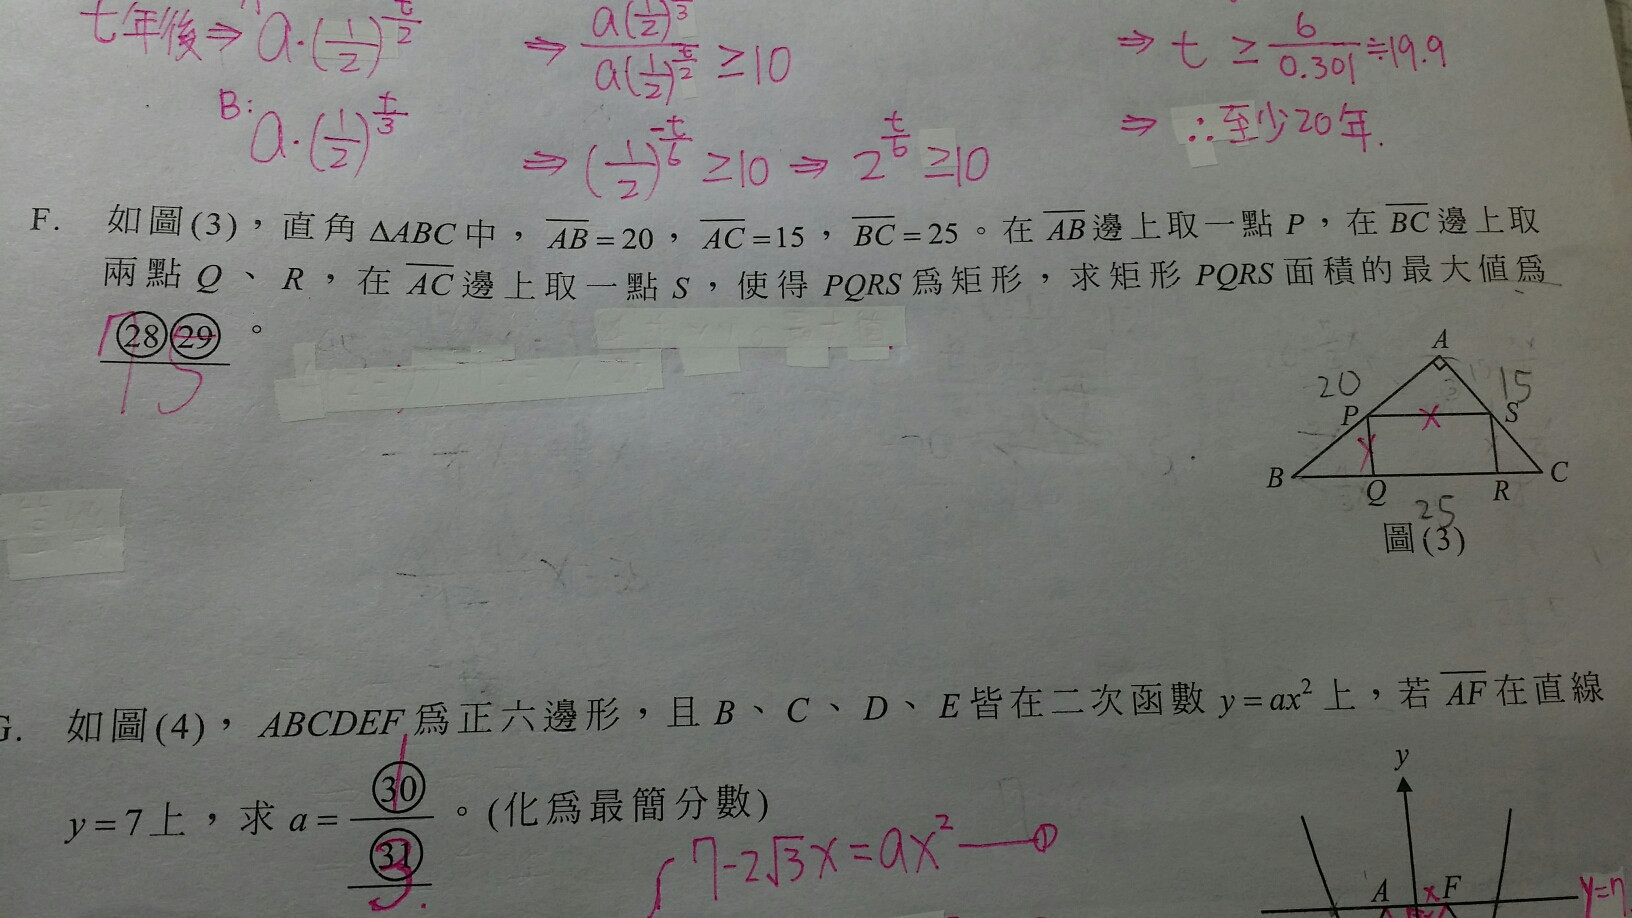 七年後⇒ a·(1/2)^(t/2) ⇒ a(1/2)^(t/3) / a(1/2)^(t/2) ≥10 ⇒ t ≥ 6/0.301 ≑19.9
B: a·(1/2)^(t/3) ⇒ (1/2)^(-t/6) ≥10 ⇒ 2^(t/6) ≥10 ⇒ ∴至少20年.
F. 如圖(3),直角ΔABC中,AB=20,AC=15,BC=25。在AB邊上取一點P,在BC邊上取
兩點Q、R,在AC邊上取一點S,使得PQRS為矩形,求矩形PQRS面積的最大值為
㉘㉙。
75
A
20 15
P x S
y
B Q R C
25
圖(3)
G. 如圖(4),ABCDEF為正六邊形,且B、C、D、E皆在二次函數y=ax²上,若AF在直線
y=7上,求a=㉚/㉛。(化為最簡分數)
1
3.
7-2√3x=ax² ——①
y
A x F y=7